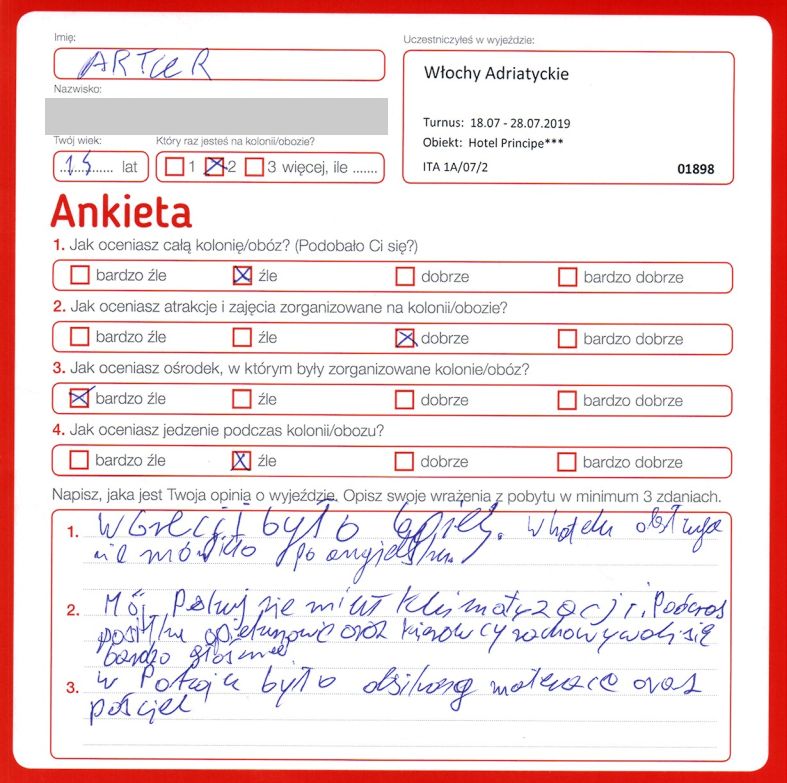 Imię:
ARTUR
Nazwisko:
Twój wiek:
Który raz jesteś na kolonii/obozie?
15 lat
1 2 3 więcej, ile .......
Uczestniczyłeś w wyjeździe:
Włochy Adriatyckie
Turnus: 18.07 - 28.07.2019
Obiekt: Hotel Principe***
ITA 1A/07/2 01898
Ankieta
1. Jak oceniasz całą kolonię/obóz? (Podobało Ci się?)
bardzo źle źle dobrze bardzo dobrze
2. Jak oceniasz atrakcje i zajęcia zorganizowane na kolonii/obozie?
bardzo źle źle dobrze bardzo dobrze
3. Jak oceniasz ośrodek, w którym były zorganizowane kolonie/obóz?
bardzo źle źle dobrze bardzo dobrze
4. Jak oceniasz jedzenie podczas kolonii/obozu?
bardzo źle źle dobrze bardzo dobrze
Napisz, jaka jest Twoja opinia o wyjeździe. Opisz swoje wrażenia z pobytu w minimum 3 zdaniach.
1. W Grecji było lepiej. W hotelu obsługa
nie mówiło po angielsku.
2. Mój Pokój nie miał klimatyzacji. Podczas
posiłku opiekunowie oraz kierowcy zachowywali się
bardzo głośno
3. W Pokoju było materace oraz
pościel